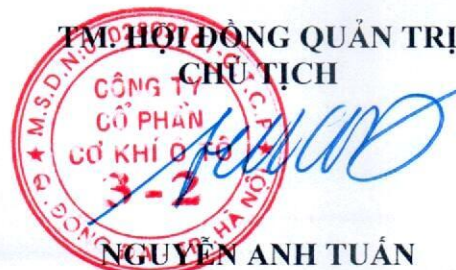 TM. HỘI ĐỒNG QUẢN TRỊ
CHỦ TỊCH
M.S.D.N:
C.T.C.P
CÔNG TY
CỔ PHẦN
CƠ KHÍ Ô TÔ
3-2
Q. ĐỐNG ĐA - TP HÀ NỘI
NGUYỄN ANH TUẤN